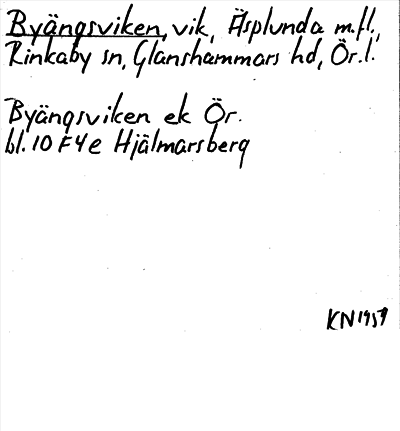 Byängsviken, vik, Äsplunda m.fl.,
Rinkaby sn, Glanshammars hd, Ör.l.
Byängsviken ek Ör.
bl. 10 F4e Hjälmarsberg
KN 1959